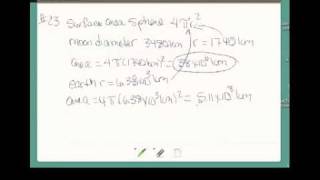 23 Surface area Sphere 4πr²
moon diameter 3480km r=1740km
area=4π(1740km)²=38x10⁶km
earth r=6.38x10³km
area=4π(6.38x10³km)²=5.11x10⁸km